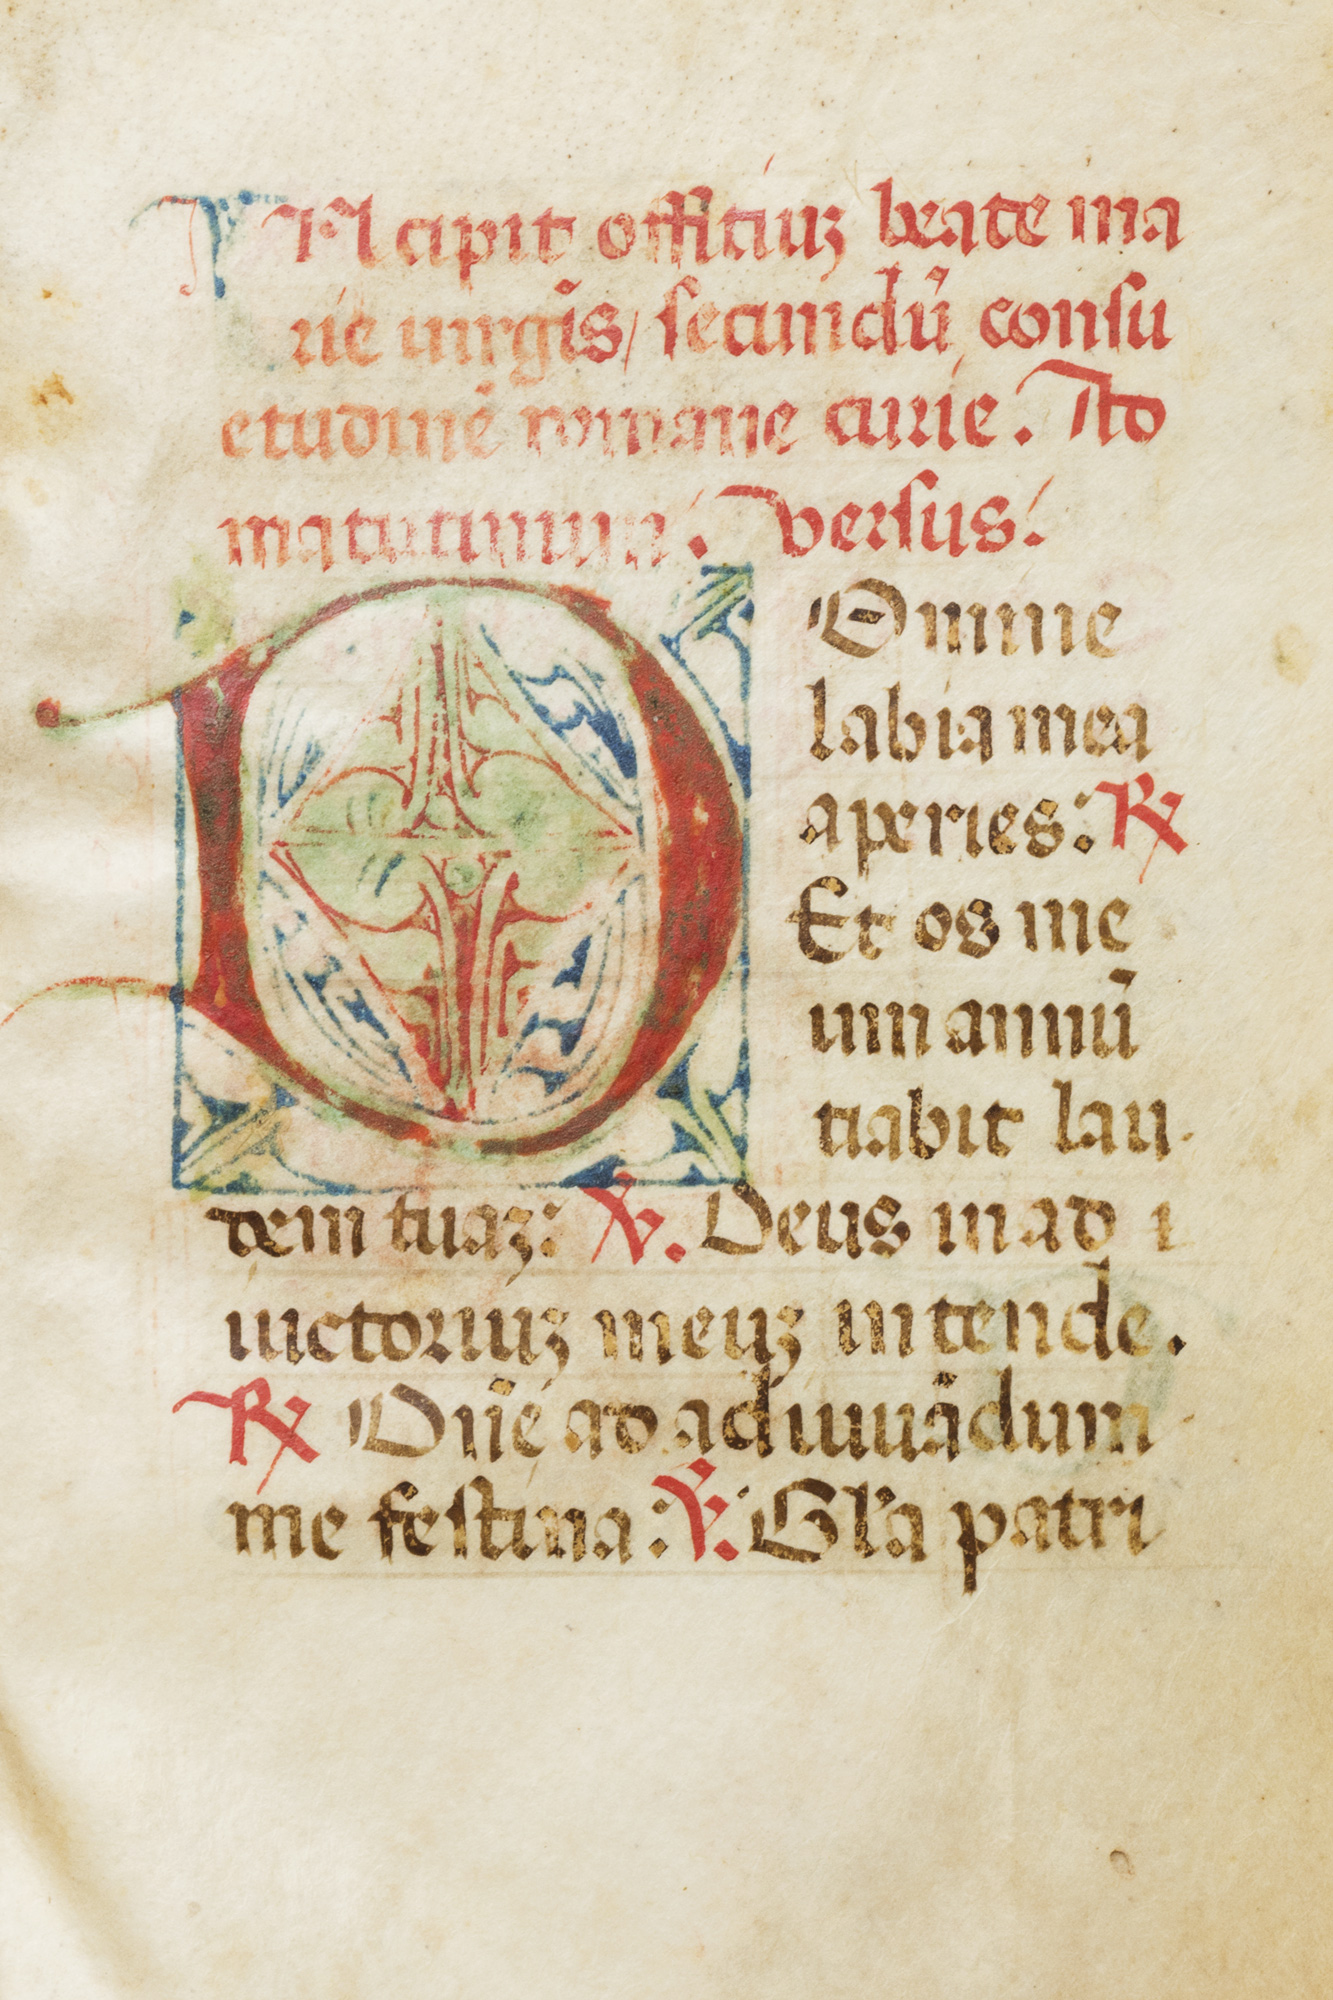 INcipit offitiuz beate ma
rie uirgis/ secundū consu
etudinē romane curie. Ad
matutinum. versus.
DOmine
labia mea
aperies: ℟
Et os me
um annū
tiabit lau
dem tuaz: ℣. Deus in ad i
iuctoriuz meuz in tende.
℟ Dn̄e ad adiuuādum
me festina: ℣. Gl'a patri